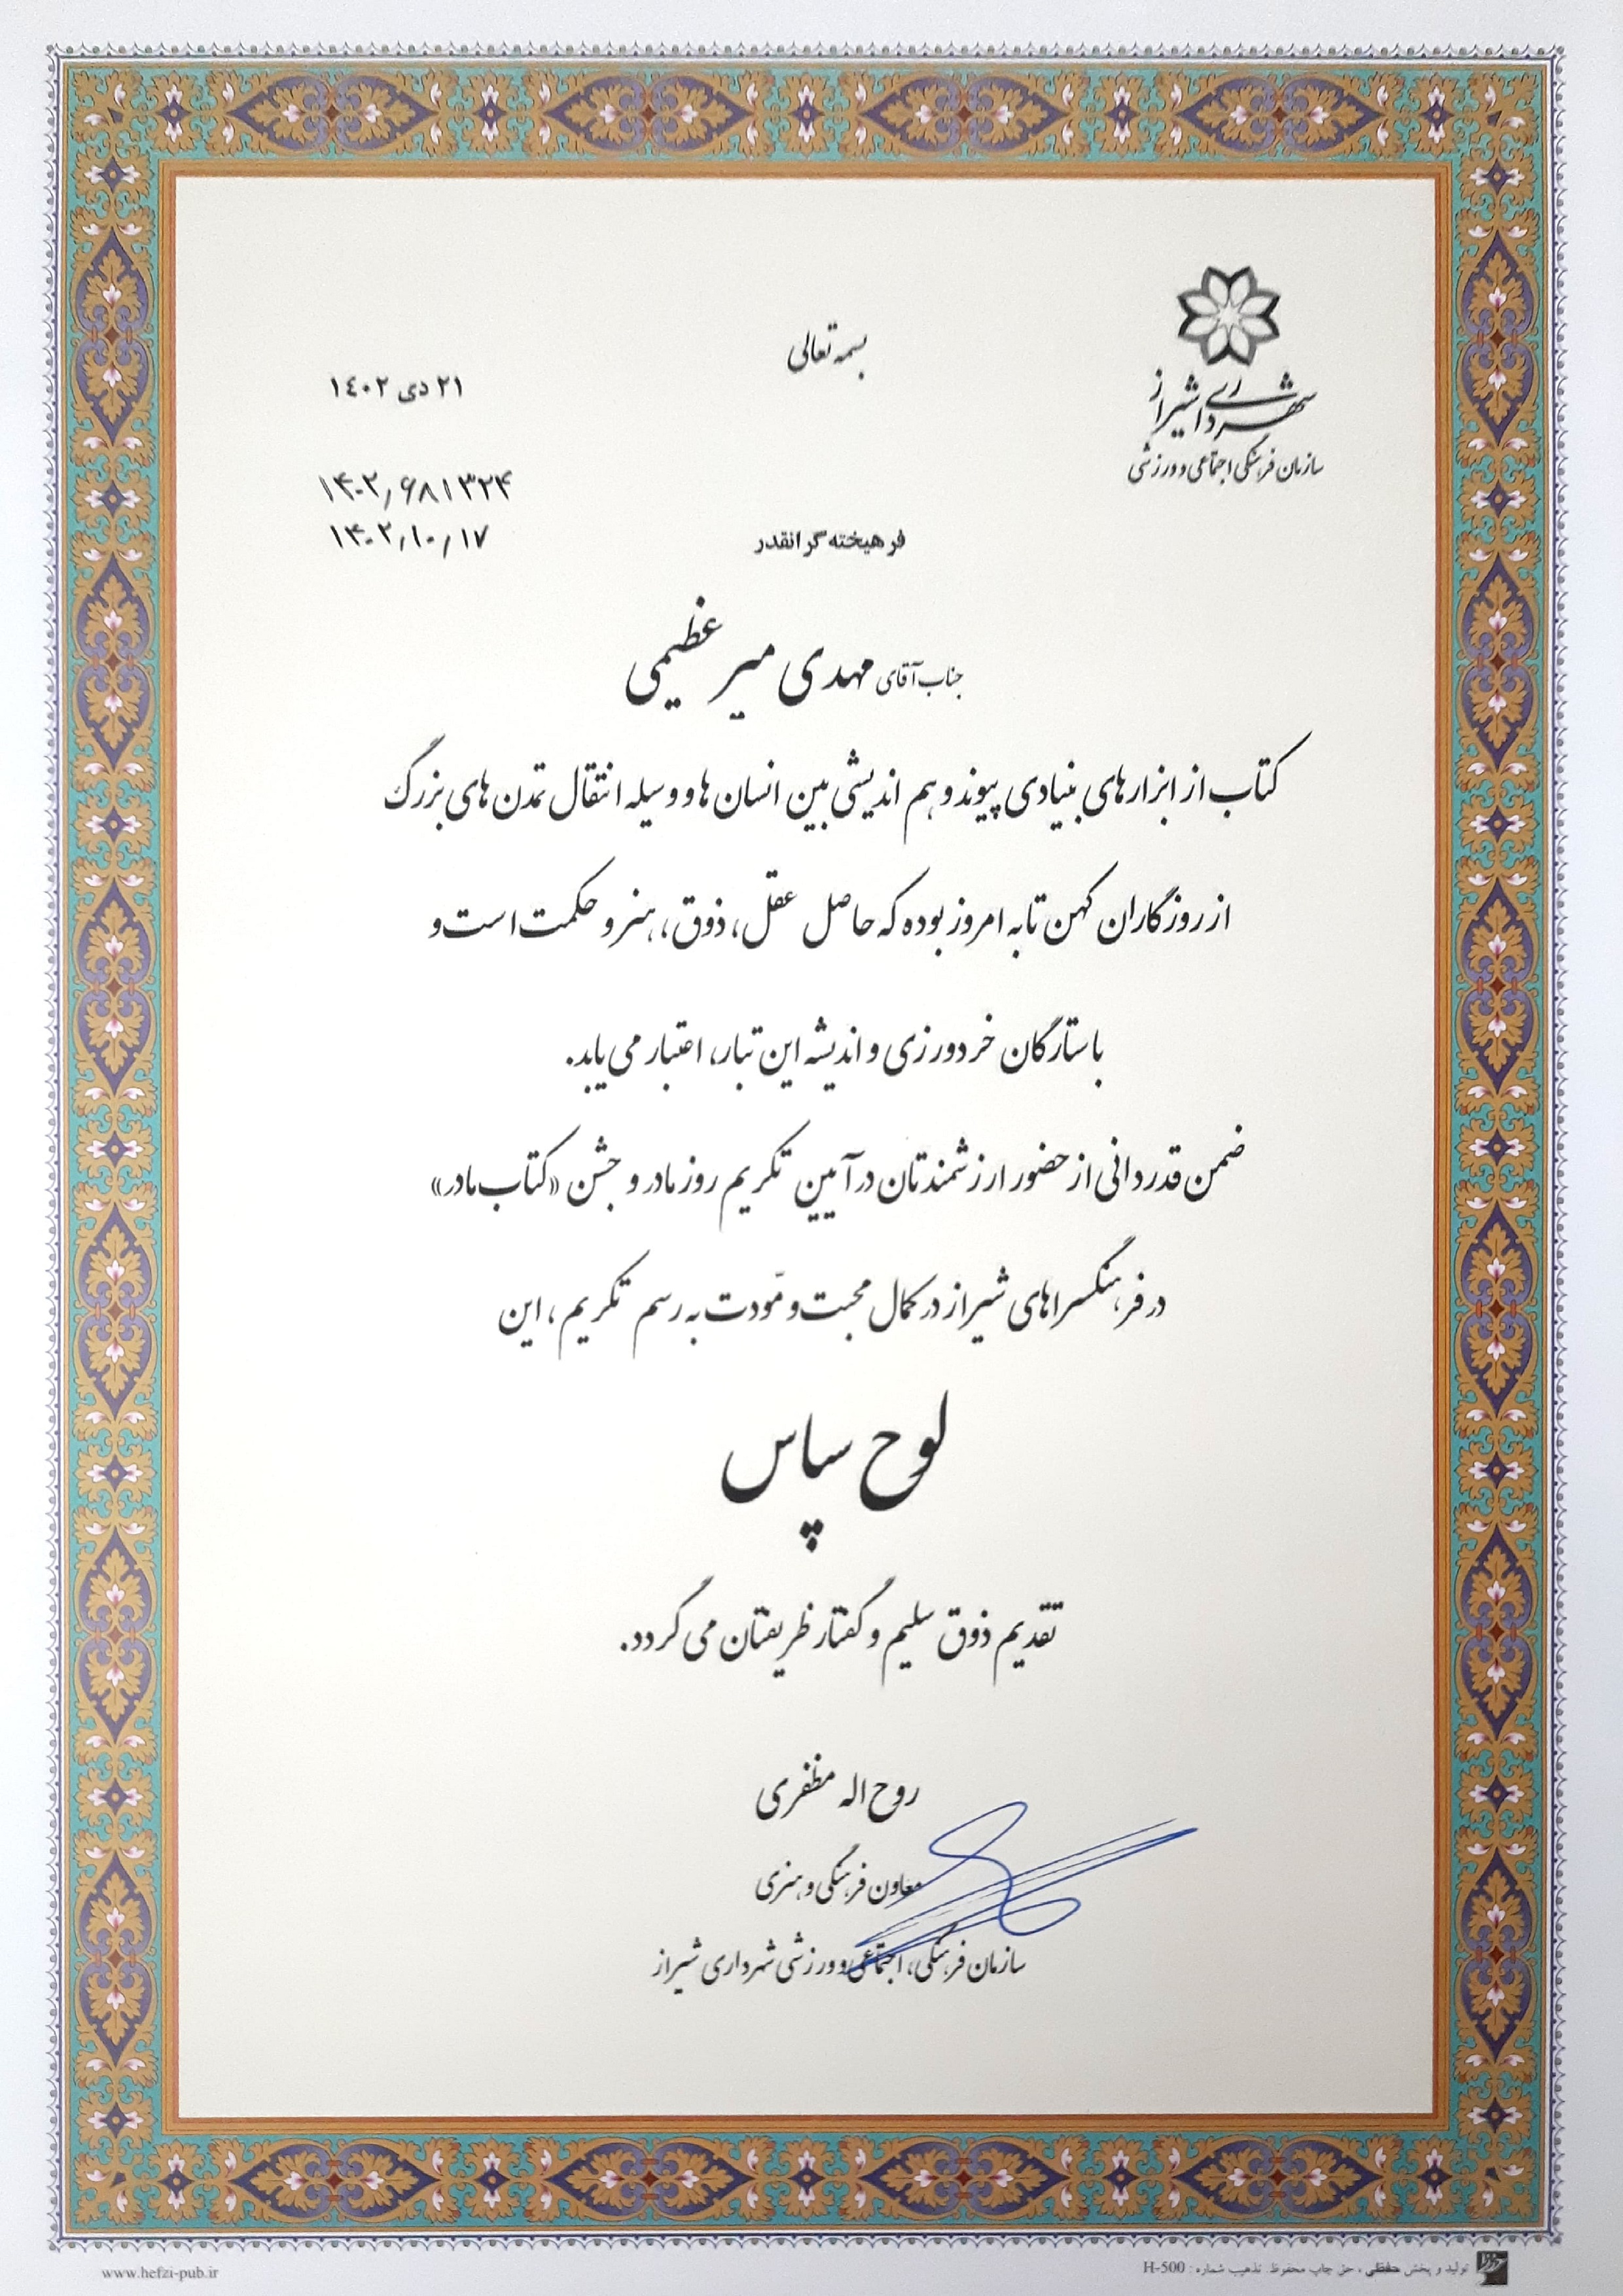 بسمه تعالی
شهرداری شیراز
سازمان فرهنگی اجتماعی و ورزشی
۲۱ دی ۱٤۰۲
۱۴۰۲٫۶۸۱۳۲۴
۱۴۰۲٫۱۰٫۱۷
فرهیخته گرانقدر
جناب آقای مهدی میر عظیمی
کتاب از ابزارهای بنیادی پیوند و هم اندیشی بین انسان ها و وسیله انتقال تمدن های بزرگ
از روزگاران کهن تا به امروز بوده که حاصل عقل، ذوق، هنر و حکمت است و
با ستارگان خردورزی و اندیشه این تبار، اعتبار می یابد.
ضمن قدردانی از حضور ارزشمندتان در آیین تکریم روز مادر و جشن «کتاب مادر»
در فرهنگسراهای شیراز در کمال محبت و مودّت به رسم تکریم، این
لوح سپاس
تقدیم ذوق سلیم و گفتار ظریفتان می گردد.
روح اله مظفری
معاون فرهنگی و هنری
سازمان فرهنگی، اجتماعی و ورزشی شهرداری شیراز
تولید و پخش حافظی ، حق چاپ محفوظ. تذهیب شماره : H-500
www.hefzi-pub.ir